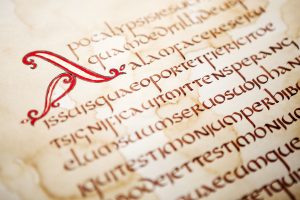 A
pocalypsisiesu
quamdeditillideusp
alamfacereserui
issuisquaeoportetfiericitoe
tsignificauitmittensperang
elumsuumseruosuoiohan
iquitestimoniumperhib
rbodeiettestimon